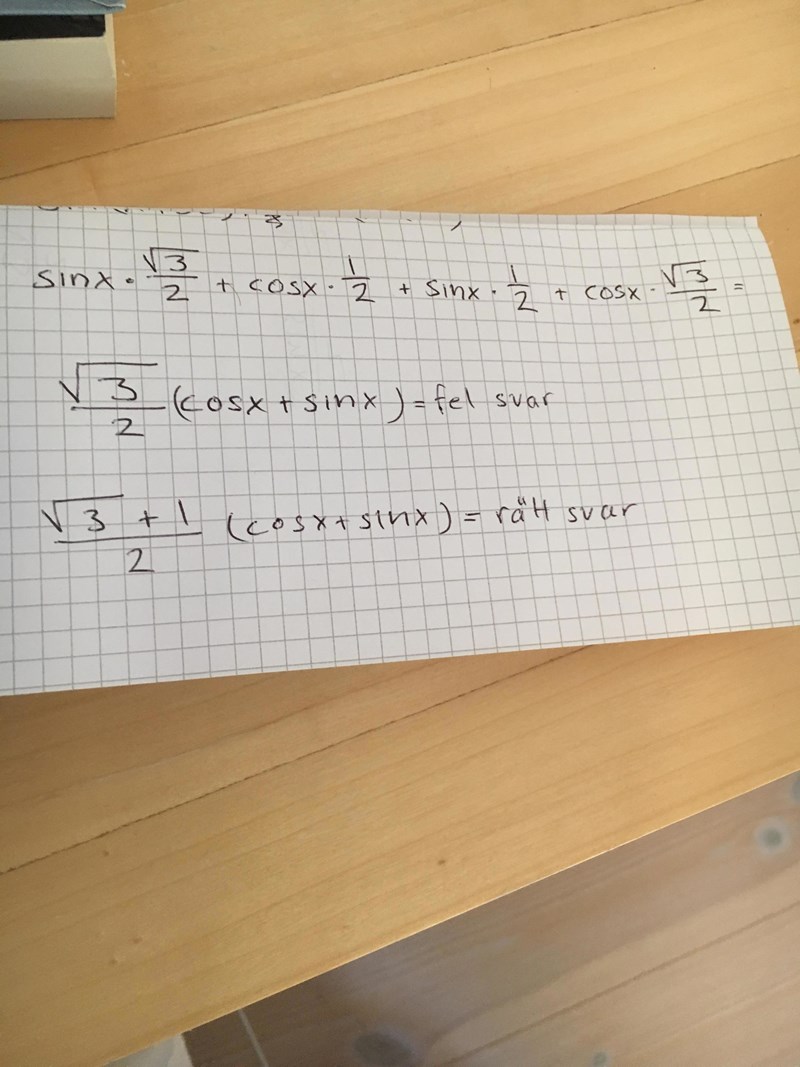 sinx · √3/2 + cosx · 1/2 + sinx · 1/2 + cosx · √3/2 =
√3/2 (cosx + sinx) = fel svar
√3 + 1/2 (cosx + sinx) = rätt svar